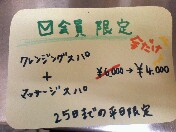 ☑会員限定
今だけ
クレンジングスパ
+
マッサージスパ
¥6,000→¥4,000
25日までの平日限定